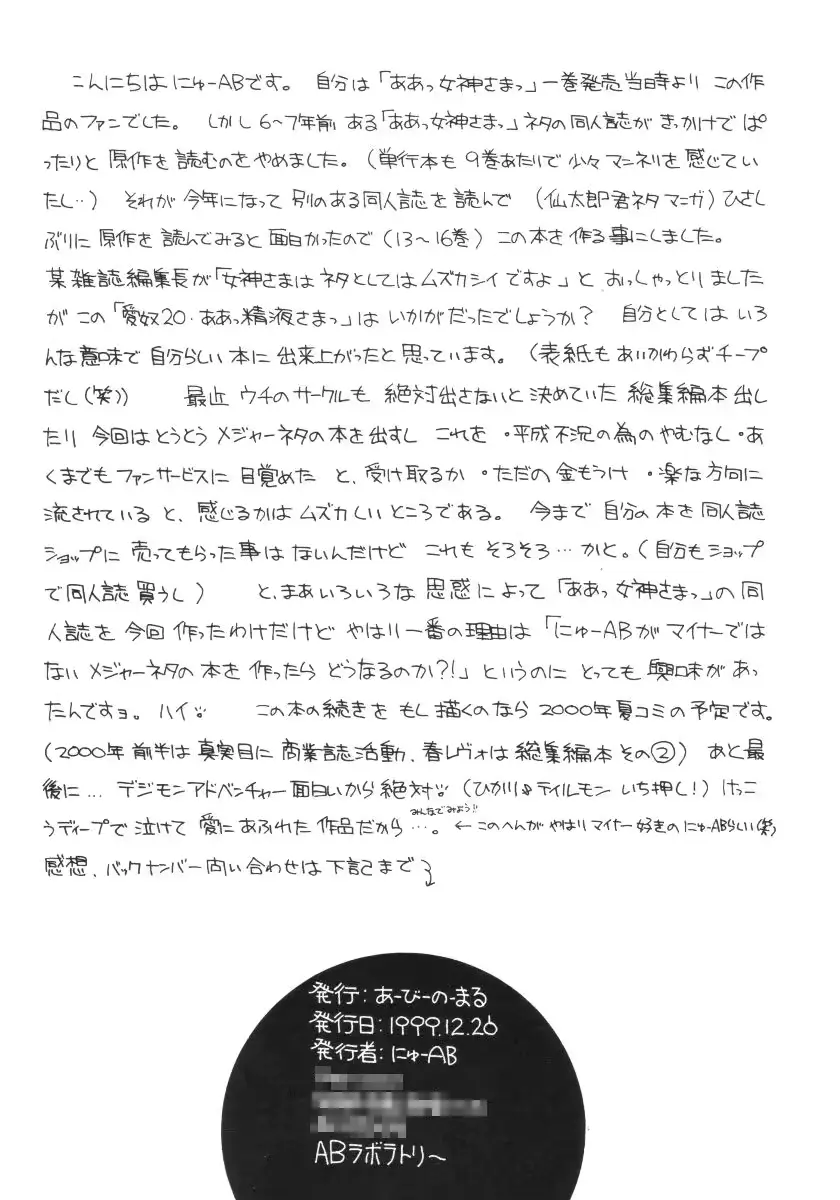 こんにちは にゅーABです。 自分は「ああっ女神さまっ」一巻発売当時より この作
品のファンでした。 しかし 6〜7年前 ある「ああっ女神さまっ」ネタの同人誌が きっかけで ぱ
ったりと 原作を 読むのをやめました。(単行本も 9巻あたりで少々マンネリを感じてい
たし‥) それが 今年になって 別のある同人誌を読んで (仙太郎君ネタマンガ) ひさし
ぶりに 原作を 読んでみると 面白かったので (13〜16巻) この本を作る事にしました。
某雑誌編集長が「女神さまは ネタとしては ムズカシイですよ」と おっしゃっとりました
が この「愛奴20・ああっ精液さまっ」は いかがだったでしょうか? 自分としては いろ
んな意味で 自分らしい本に 出来上がったと思っています。(表紙も あいかわらずチープ
だし(笑)) 最近 ウチのサークルも 絶対出さないと 決めていた 総集編本 出し
たり 今回はとうとう メジャーネタの本を出すし これを ・平成不況の為のやむなし ・あ
くまでもファンサービスに 目覚めた と、受け取るか ・ただの金もうけ ・楽な方向に
流されている と、感じるかは ムズカしい ところである。 今まで 自分の本を同人誌
ショップに 売ってもらった事は ないんだけど これも そろそろ…かと。(自分もショップ
で同人誌買うし) と、まあいろいろな 思惑によって「ああっ女神さまっ」の同
人誌を 今回 作ったわけだけど やはり一番の理由は「にゅーABが マイナーでは
ない メジャーネタの本を 作ったら どうなるのか?!」というのに とっても 興味があっ
たんですョ。ハイ。 この本の続きを もし描くのなら 2000年夏コミの予定です。
(2000年 前半は 真実目に 商業誌活動、春レヴォは 総集編本 その②) あと最
後に… デジモンアドベンチャー面白いから絶対 (ひかり♪テイルモン いち押し!) けっこ
うディープで 泣けて 愛に あふれた 作品だから…。 みんなでみよう!! ← このへんが やはりマイナー好きの にゅーABらしい(笑)
感想、バックナンバー問い合わせは 下記まで
発行:あーびーの・まる
発行日:1999.12.26
発行者:にゅーAB
ABラボラトリ〜